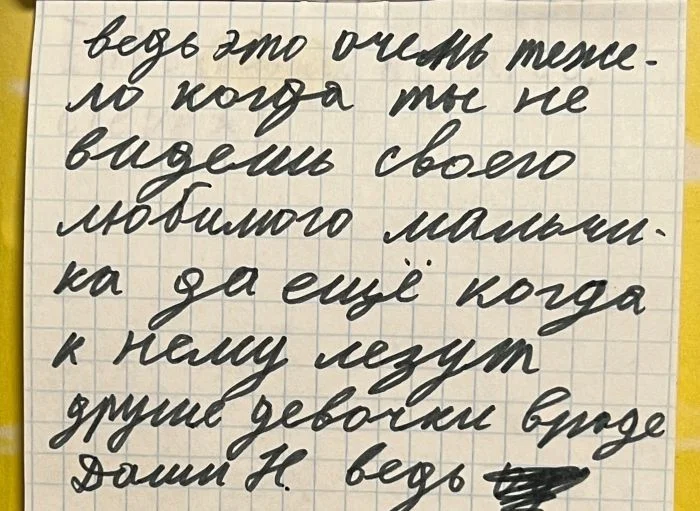 ведь это очень теже-
ло когда ты не
видешь своего
любимого мальчи-
ка да ещё когда
к нему лезут
другие девочки вроде
Даши Н. ведь